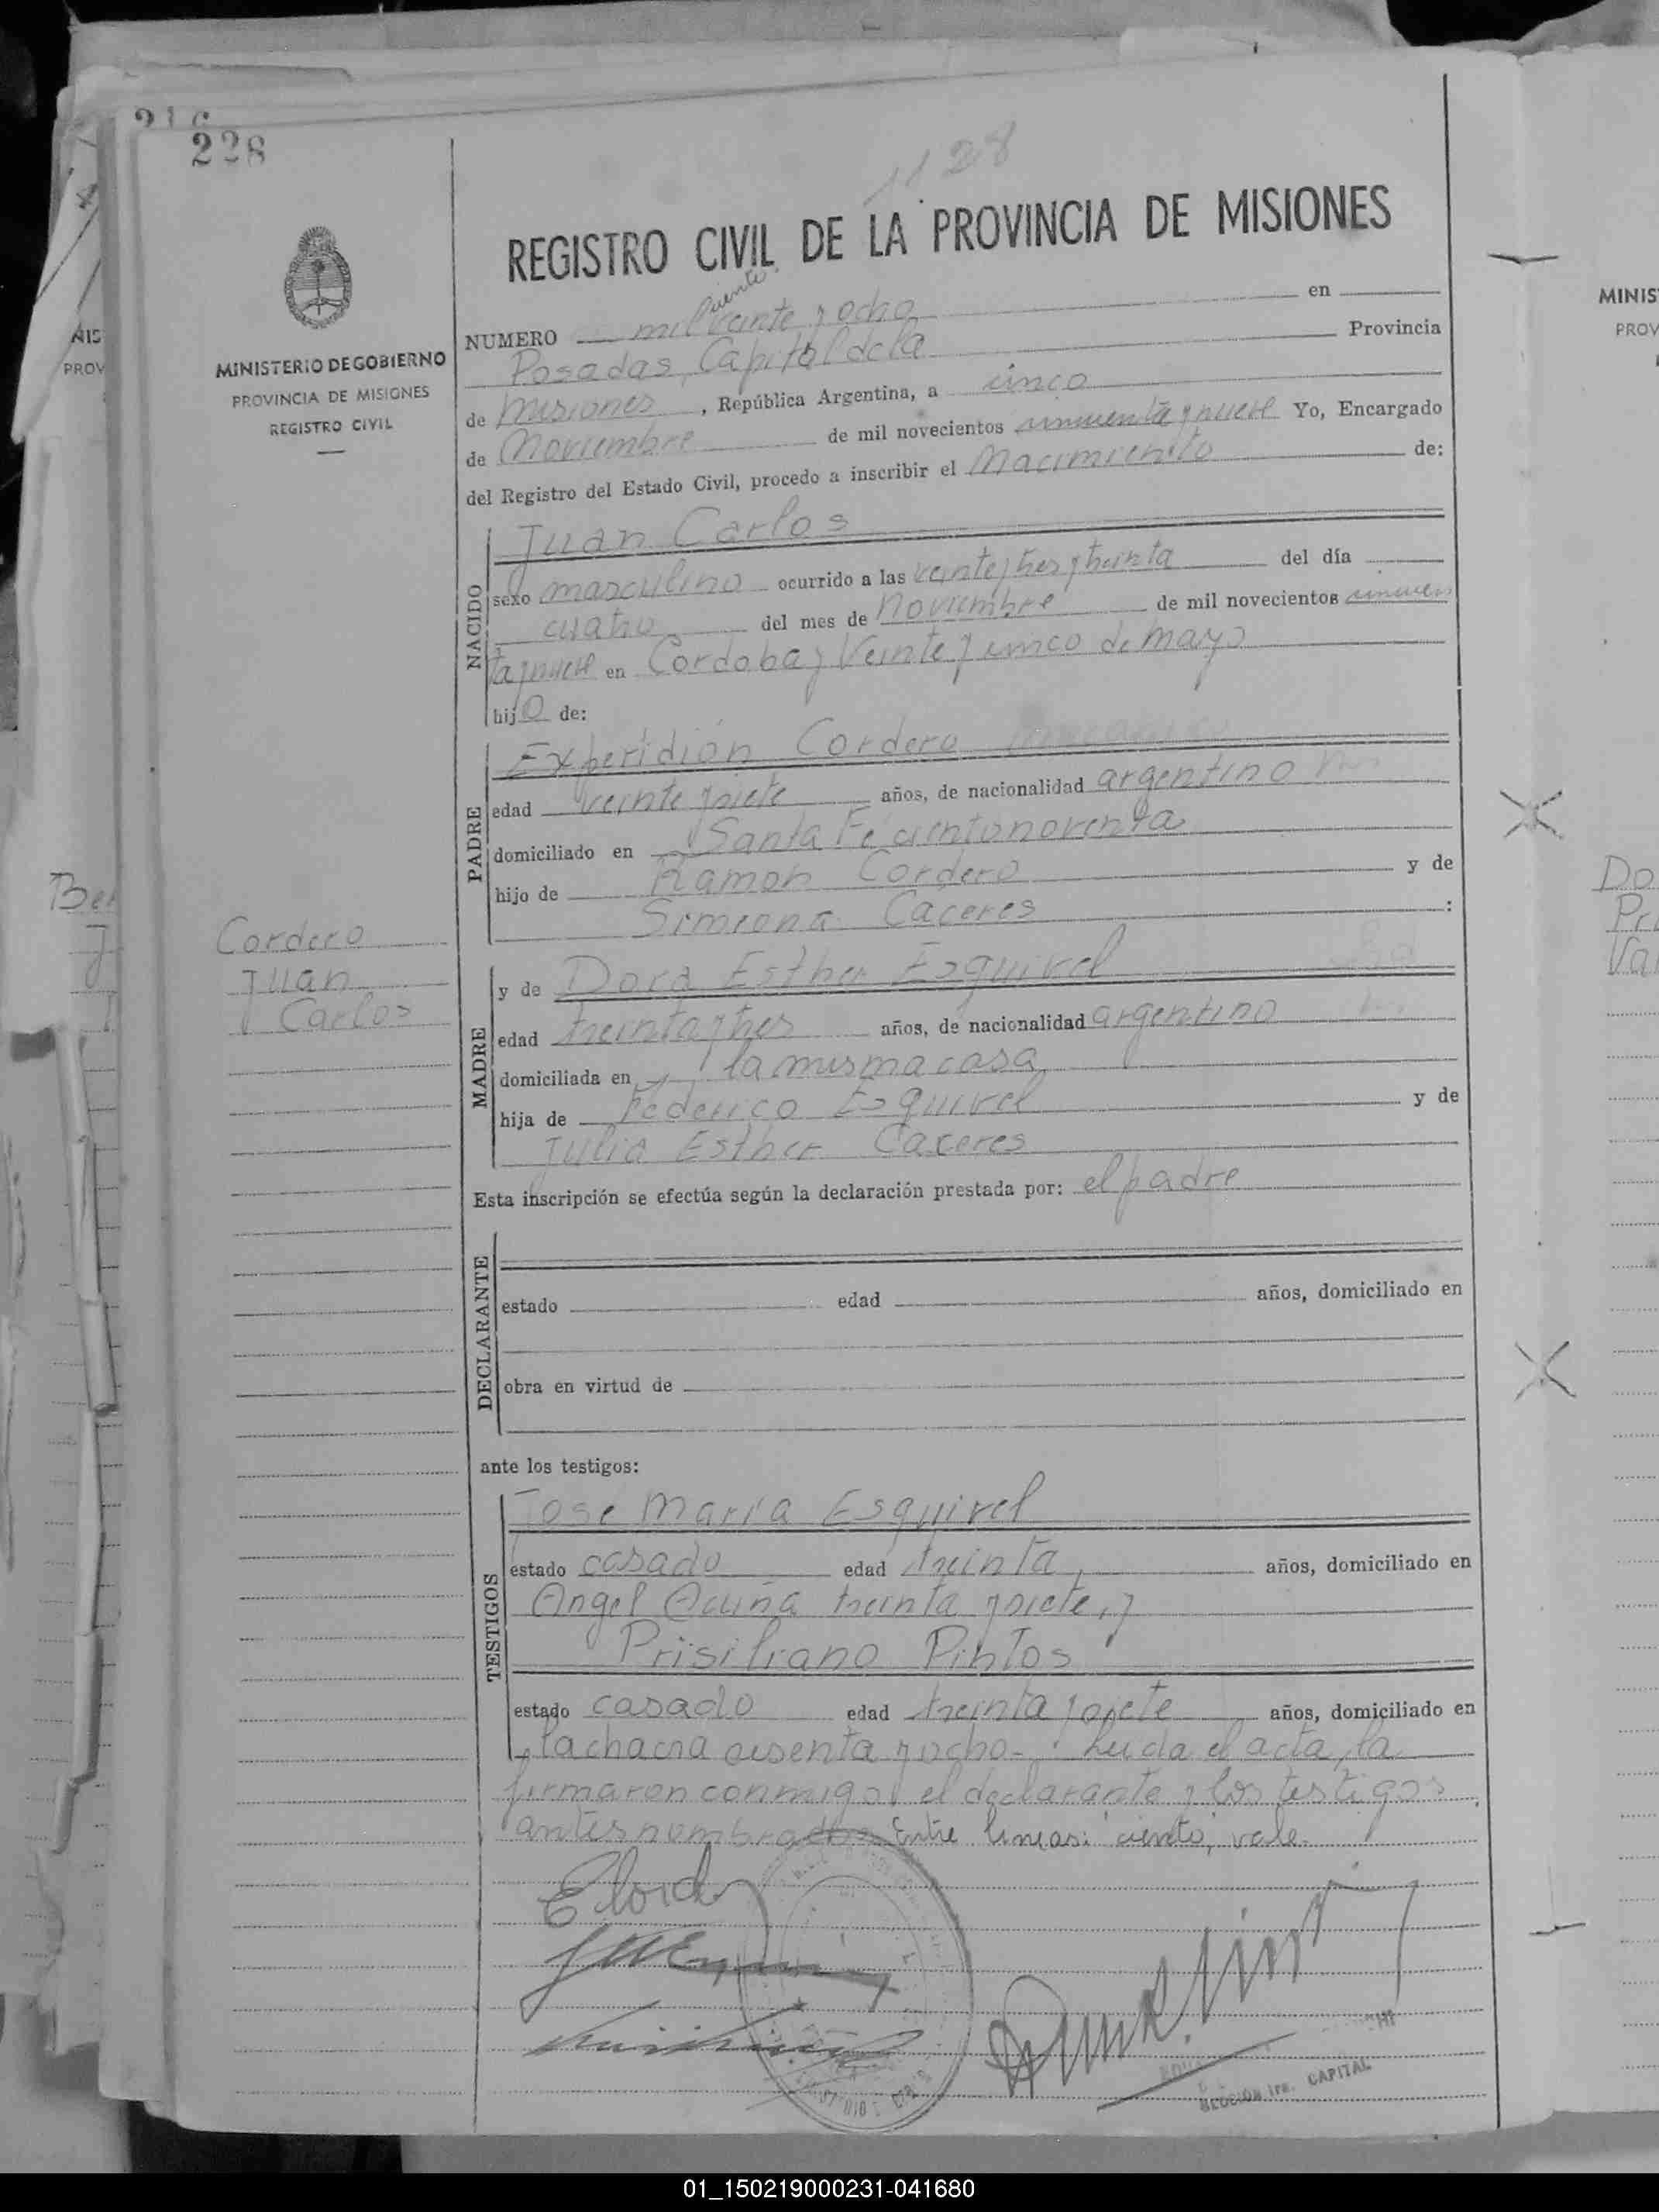 216
228
1128
REGISTRO CIVIL DE LA PROVINCIA DE MISIONES
MINISTERIO DE GOBIERNO
PROVINCIA DE MISIONES
REGISTRO CIVIL
NUMERO mil veinte y ocho en
Posadas, Capital de la Provincia
de Misiones, República Argentina, a cinco
de Noviembre de mil novecientos cincuenta y nueve Yo, Encargado
del Registro del Estado Civil, procedo a inscribir el Nacimiento de:
NACIDO
Juan Carlos
sexo masculino ocurrido a las veinte y tres y treinta del día
cuatro del mes de Noviembre de mil novecientos cincuen
ta y nueve en Córdoba y Veinte y cinco de mayo
hijo de:
PADRE
Experidión Cordero
edad veinte y siete años, de nacionalidad argentino
domiciliado en Santa Fe ciento noventa
hijo de Ramon Cordero y de
Simeona Caceres :
Cordero
Juan
Carlos
MADRE
y de Dora Esther Esquivel
edad treinta y tres años, de nacionalidad argentino
domiciliada en la misma casa
hija de Federico Esquivel y de
Julia Esther Caceres
Esta inscripción se efectúa según la declaración prestada por: el padre
DECLARANTE
estado edad años, domiciliado en
obra en virtud de
ante los testigos:
TESTIGOS
Jose Maria Esquivel
estado casado edad treinta, años, domiciliado en
Angel Acuña treinta y siete, y
Prisiliano Pintos
estado casado edad treinta y siete años, domiciliado en
la chacra sesenta y ocho. Leida el acta, la
firmaron conmigo el declarante y los testigos
antes nombrados Entre lineas: ciento, vale.
SECCION 1ra. CAPITAL
MINIS
PROV
Do
Pri
Va
Ber
J
NIS
PROV
01_150219000231-041680